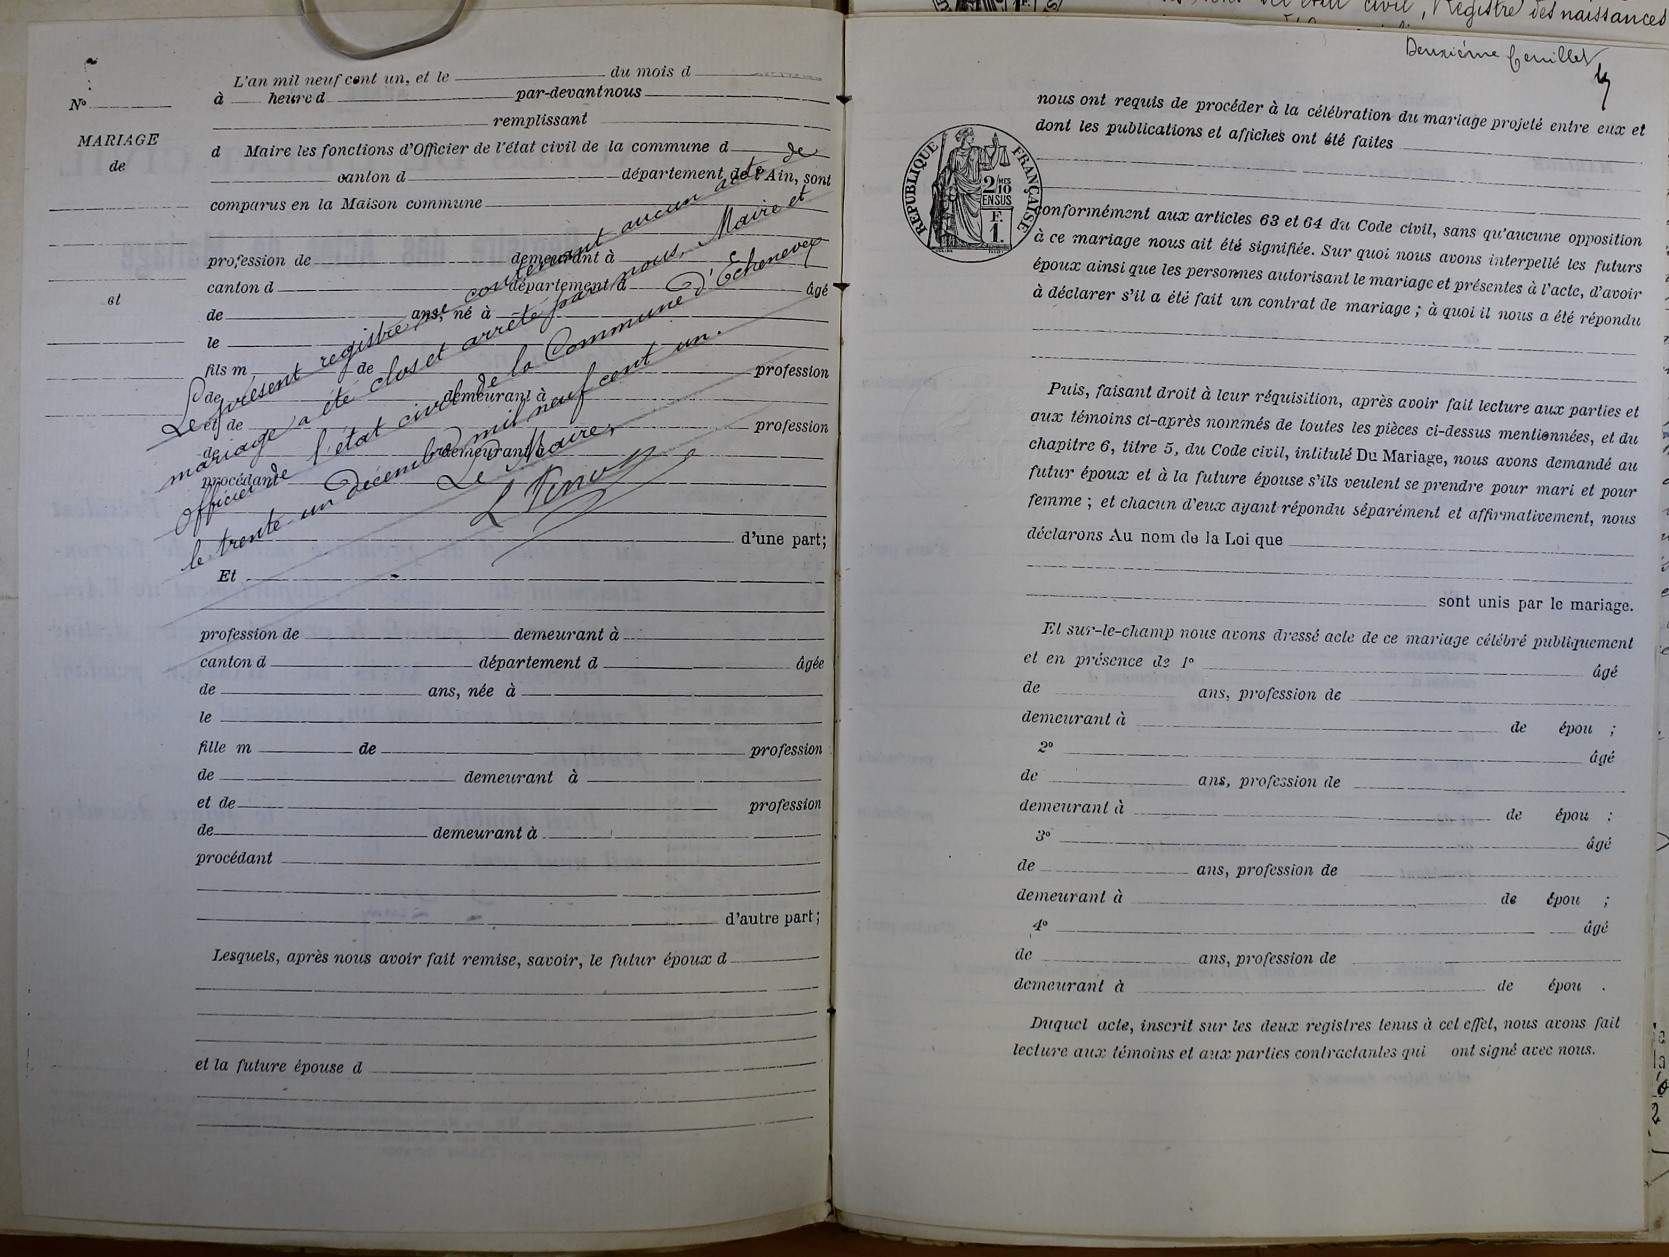 L'an mil neuf cent un, et le du mois d
N° à heure d par-devant nous
remplissant
MARIAGE
de
d Maire les fonctions d'Officier de l'état civil de la commune d
canton d département de l'Ain, sont
comparus en la Maison commune
profession de demeurant à
canton d département d âgé
et
de ans, né à
le
fils m de profession
de demeurant à
et de profession
de demeurant à
procédant
d'une part;
Le présent registre ne contenant aucun acte de
mariage a été clos et arrêté par nous, Maire et
Officier de l'état civil de la Commune d'Échenevex
le trente-un décembre mil neuf cent un.
Le Maire,
Et
profession de demeurant à
canton d département d âgée
de ans, née à
le
fille m de profession
de demeurant à
et de profession
de demeurant à
procédant
d'autre part;
Lesquels, après nous avoir fait remise, savoir, le futur époux d
et la future épouse d
civil, Registre des naissances
Deuxième feuillet
nous ont requis de procéder à la célébration du mariage projeté entre eux et
dont les publications et affiches ont été faites
RÉPUBLIQUE FRANÇAISE
2/10 MES
EN SUS
F.
1.
conformément aux articles 63 et 64 du Code civil, sans qu'aucune opposition
à ce mariage nous ait été signifiée. Sur quoi nous avons interpellé les futurs
époux ainsi que les personnes autorisant le mariage et présentes à l'acte, d'avoir
à déclarer s'il a été fait un contrat de mariage ; à quoi il nous a été répondu
Puis, faisant droit à leur réquisition, après avoir fait lecture aux parties et
aux témoins ci-après nommés de toutes les pièces ci-dessus mentionnées, et du
chapitre 6, titre 5, du Code civil, intitulé Du Mariage, nous avons demandé au
futur époux et à la future épouse s'ils veulent se prendre pour mari et pour
femme ; et chacun d'eux ayant répondu séparément et affirmativement, nous
déclarons Au nom de la Loi que
sont unis par le mariage.
Et sur-le-champ nous avons dressé acte de ce mariage célébré publiquement
et en présence de 1° âgé
de ans, profession de
demeurant à de épou ;
2° âgé
de ans, profession de
demeurant à de épou ;
3° âgé
de ans, profession de
demeurant à de épou ;
4° âgé
de ans, profession de
demeurant à de épou .
Duquel acte, inscrit sur les deux registres tenus à cet effet, nous avons fait
lecture aux témoins et aux parties contractantes qui ont signé avec nous.